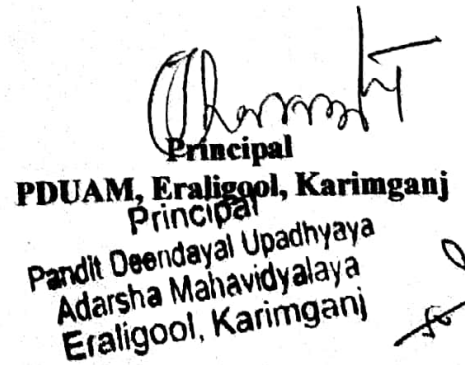 Principal
PDUAM, Eraligool, Karimganj
Principal
Pandit Deendayal Upadhyaya
Adarsha Mahavidyalaya
Eraligool, Karimganj